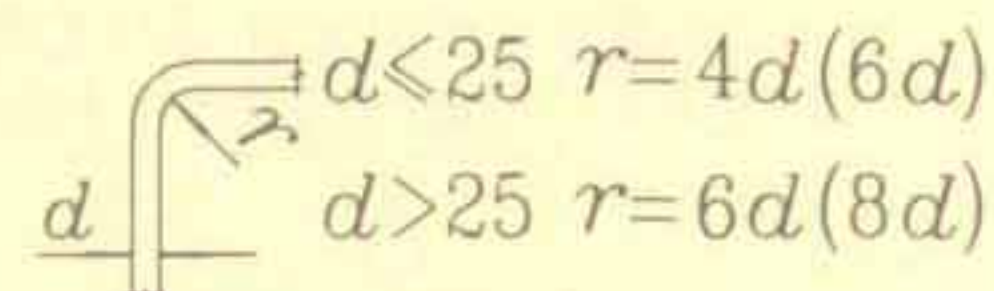 d≤25 r=4d(6d)
r
d>25 r=6d(8d)
d